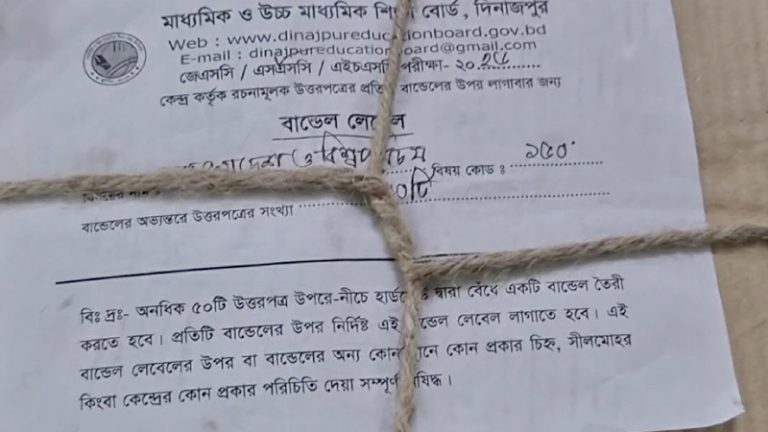 মাধ্যমিক ও উচ্চ মাধ্যমিক শিক্ষা বোর্ড, দিনাজপুর
Web : www.dinajpureducationboard.gov.bd
E-mail : dinajpureducationboard@gmail.com
জেএসসি / এসএসসি / এইচএসসি পরীক্ষা- ২০
কেন্দ্র কর্তৃক রচনামূলক উত্তরপত্রের প্রতি বান্ডেলের উপর লাগাবার জন্য
বান্ডেল লেবেল
ও বিশ্বপরিচয় বিষয় কোড : ১৫০
বান্ডেলের অভ্যন্তরে উত্তরপত্রের সংখ্যা
বিঃ দ্রঃ- অনধিক ৫০টি উত্তরপত্র উপরে-নীচে দ্বারা বেঁধে একটি বান্ডেল তৈরী
করতে হবে। প্রতিটি বান্ডেলের উপর নির্দিষ্ট এই বান্ডেল লেবেল লাগাতে হবে। এই
বান্ডেল লেবেলের উপর বা বান্ডেলের অন্য কোন স্থানে কোন প্রকার চিহ্ন, সীলমোহর
কিংবা কেন্দ্রের কোন প্রকার পরিচিতি দেয়া সম্পূর্ণ নিষিদ্ধ।